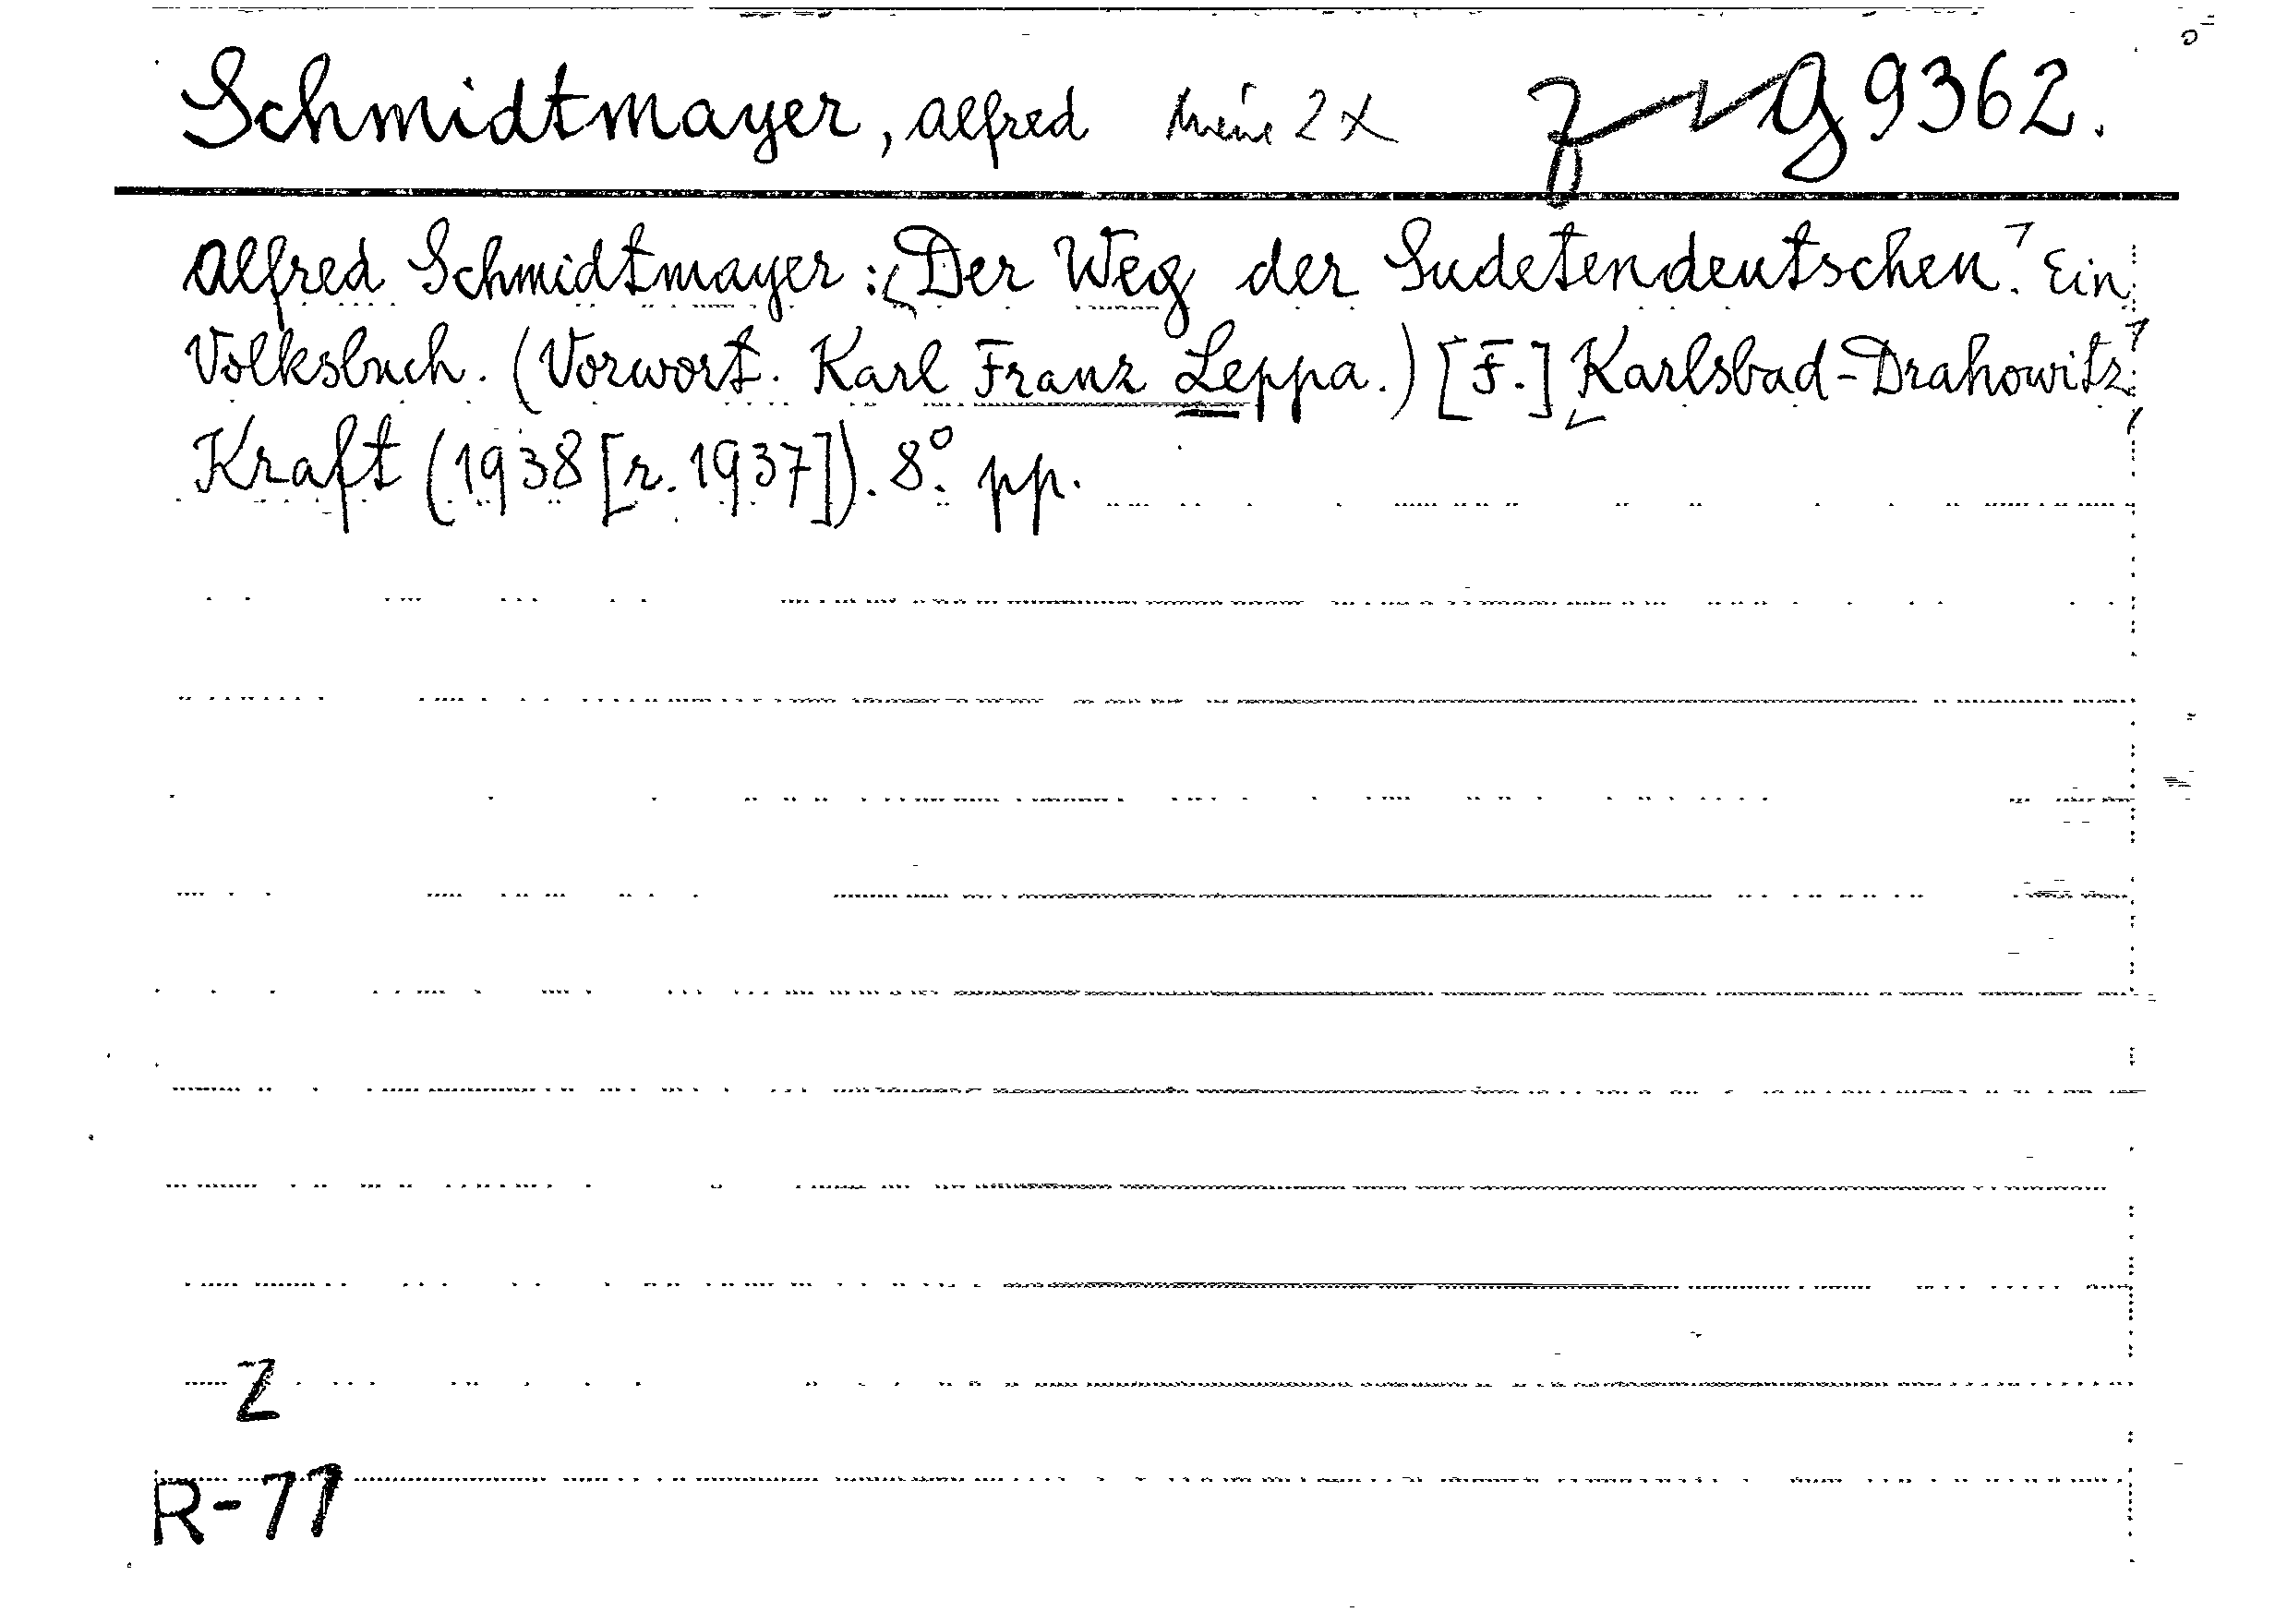 Schmidtmayer, Alfred 2 x g 9362.
Alfred Schmidtmayer: Der Weg der Sudetendeutschen. Ein
Volksbuch. (Vorwort. Karl Franz Leppa.) [F.] Karlsbad-Drahowitz:
Kraft (1938 [r. 1937]). 8° pp.
Z
R-77